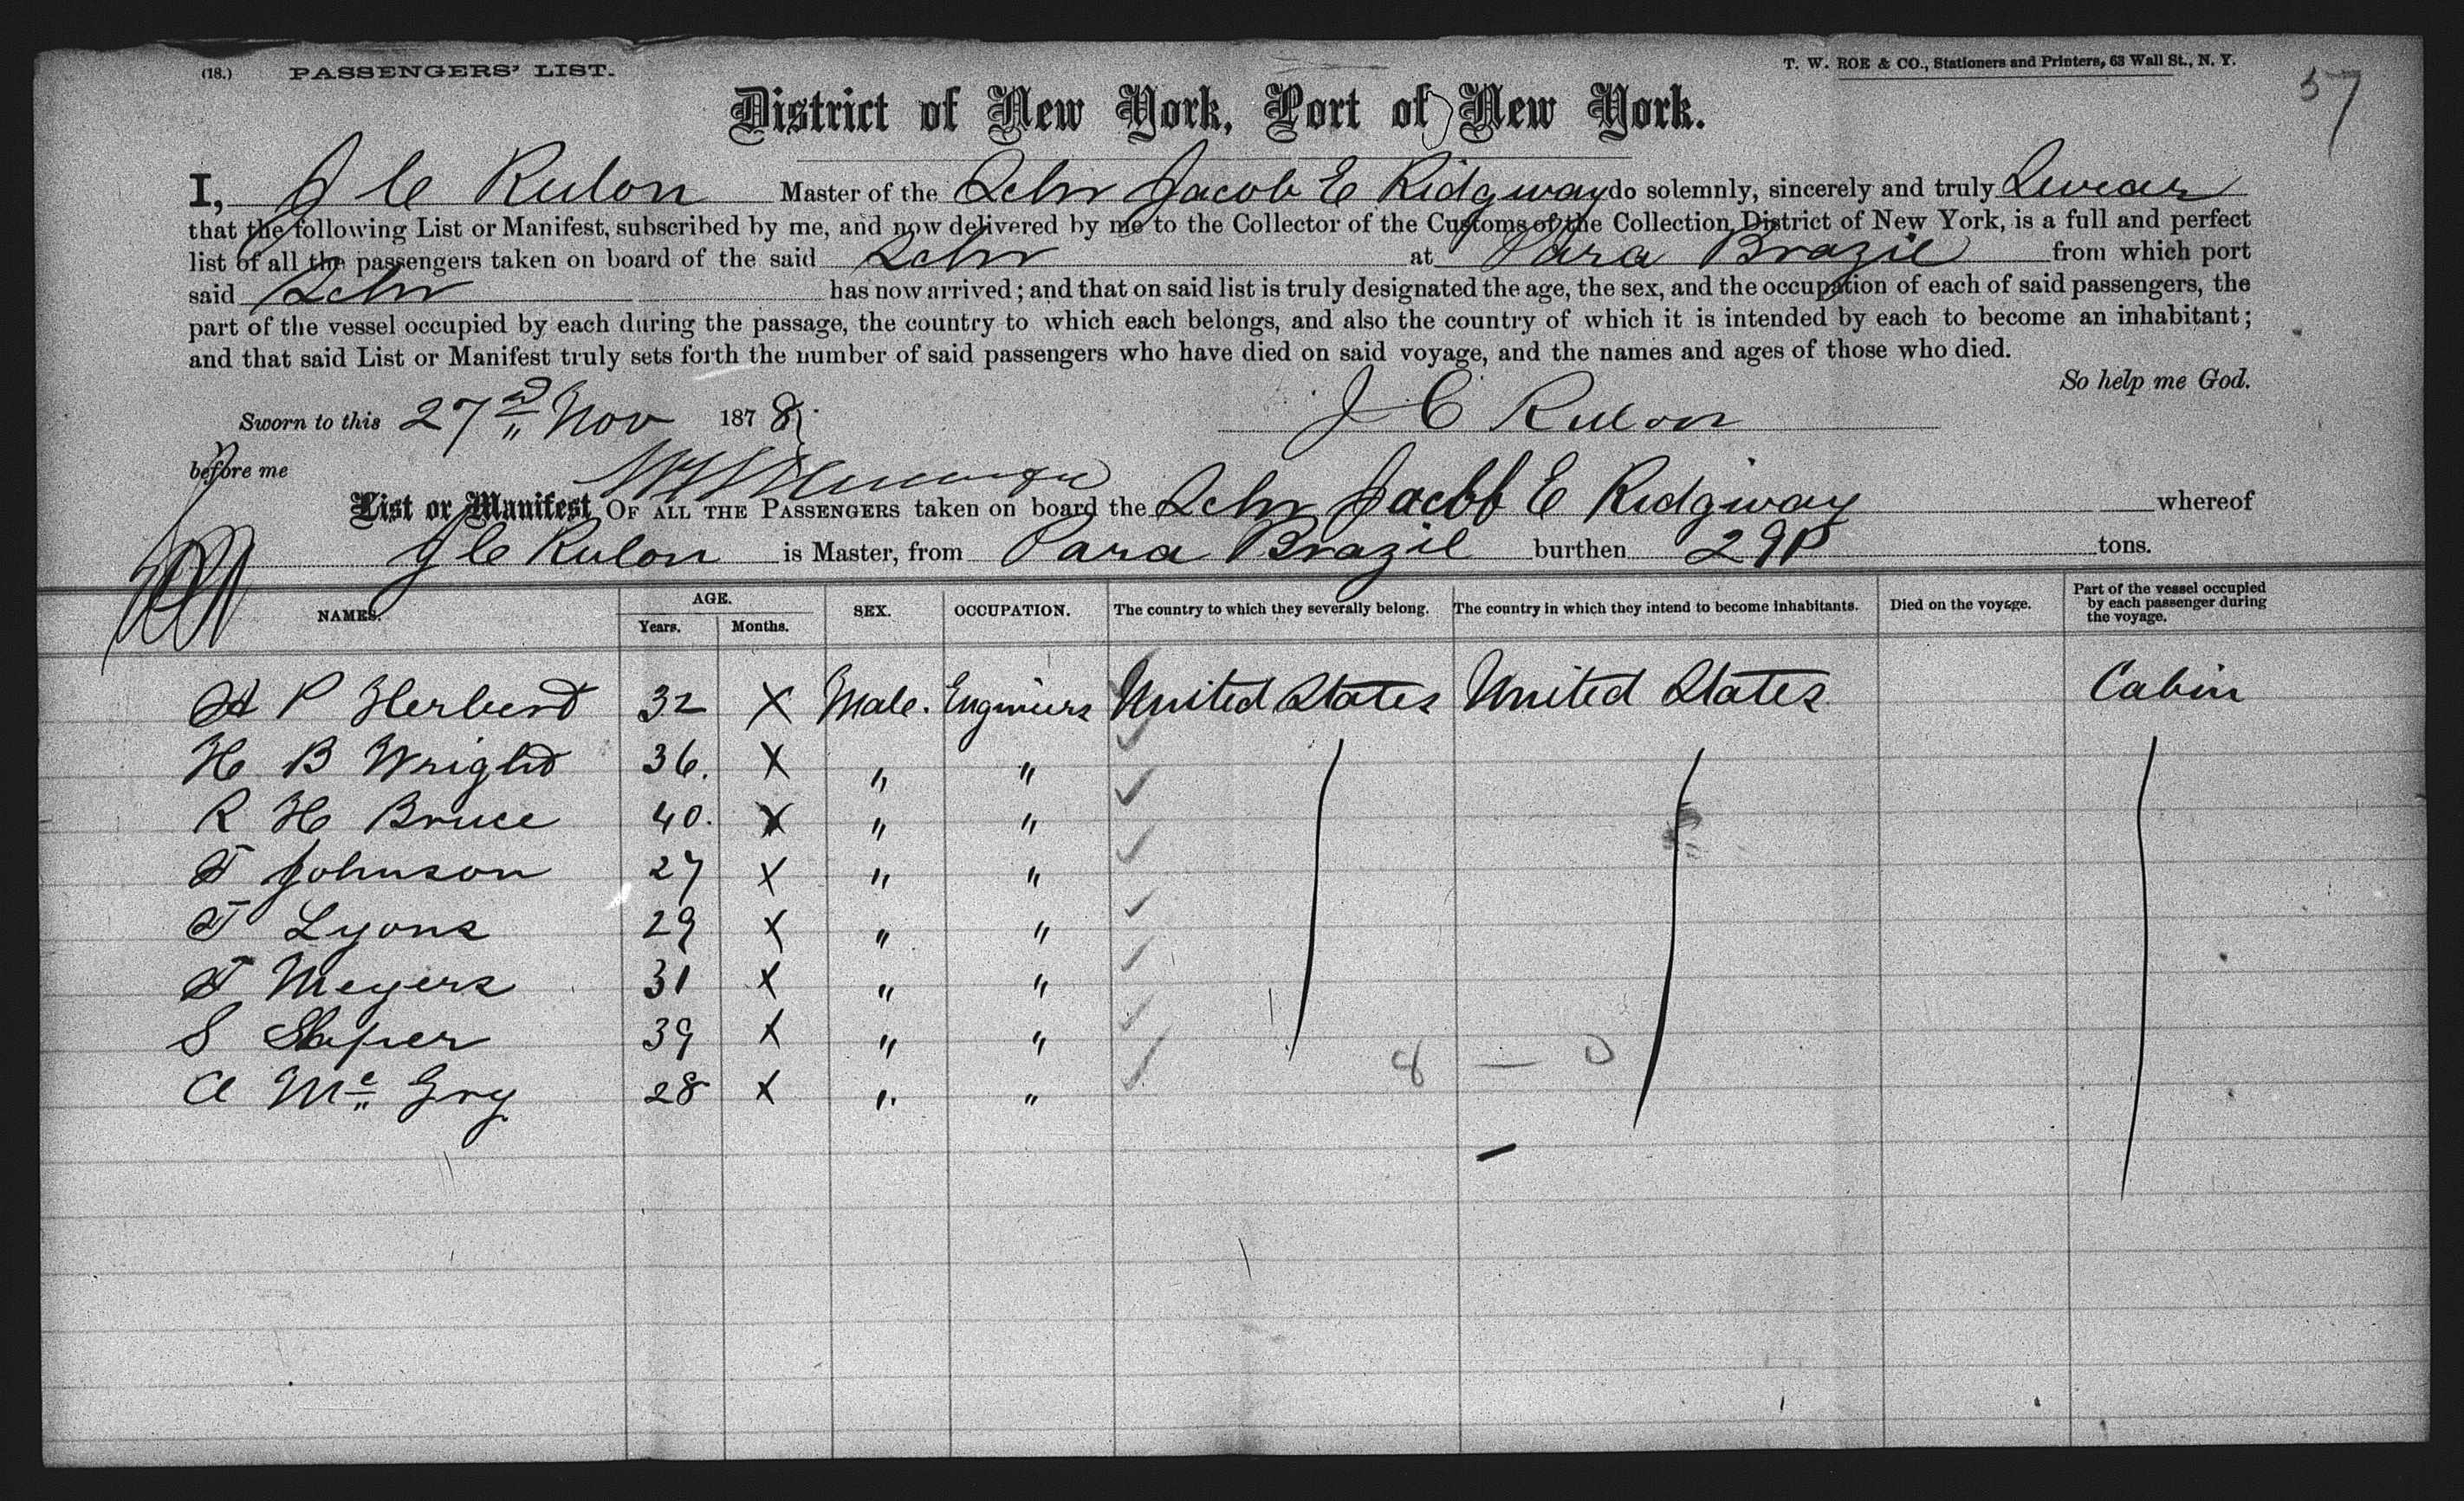 (18.) PASSENGERS' LIST. T. W. ROE & CO., Stationers and Printers, 63 Wall St., N. Y. 57
District of New York, Port of New York.
I, J C Rulon Master of the Schr Jacob E Ridgway do solemnly, sincerely and truly Swear
that the following List or Manifest, subscribed by me, and now delivered by me to the Collector of the Customs of the Collection District of New York, is a full and perfect
list of all the passengers taken on board of the said Schr at Para Brazil from which port
said Schr has now arrived; and that on said list is truly designated the age, the sex, and the occupation of each of said passengers, the
part of the vessel occupied by each during the passage, the country to which each belongs, and also the country of which it is intended by each to become an inhabitant;
and that said List or Manifest truly sets forth the number of said passengers who have died on said voyage, and the names and ages of those who died.
So help me God.
Sworn to this 27 Nov 1878 J C Rulon
before me
List or Manifest OF ALL THE PASSENGERS taken on board the Schr Jacob E Ridgway whereof
J C Rulon is Master, from Para Brazil burthen tons.
NAMES. AGE. Years. Months. SEX. OCCUPATION. The country to which they severally belong. The country in which they intend to become inhabitants. Died on the voyage. Part of the vessel occupied by each passenger during the voyage.
P Herbert 32 X Male. Engineers United States United States Cabin
H B Wright 36. X " "
R H Bruce 40. X " "
F Johnson 27 X " "
T Lyons 29 X " "
F Meyers 31 X " "
S 39 X " "
8 — 0
A Mc Gry 28 X " "